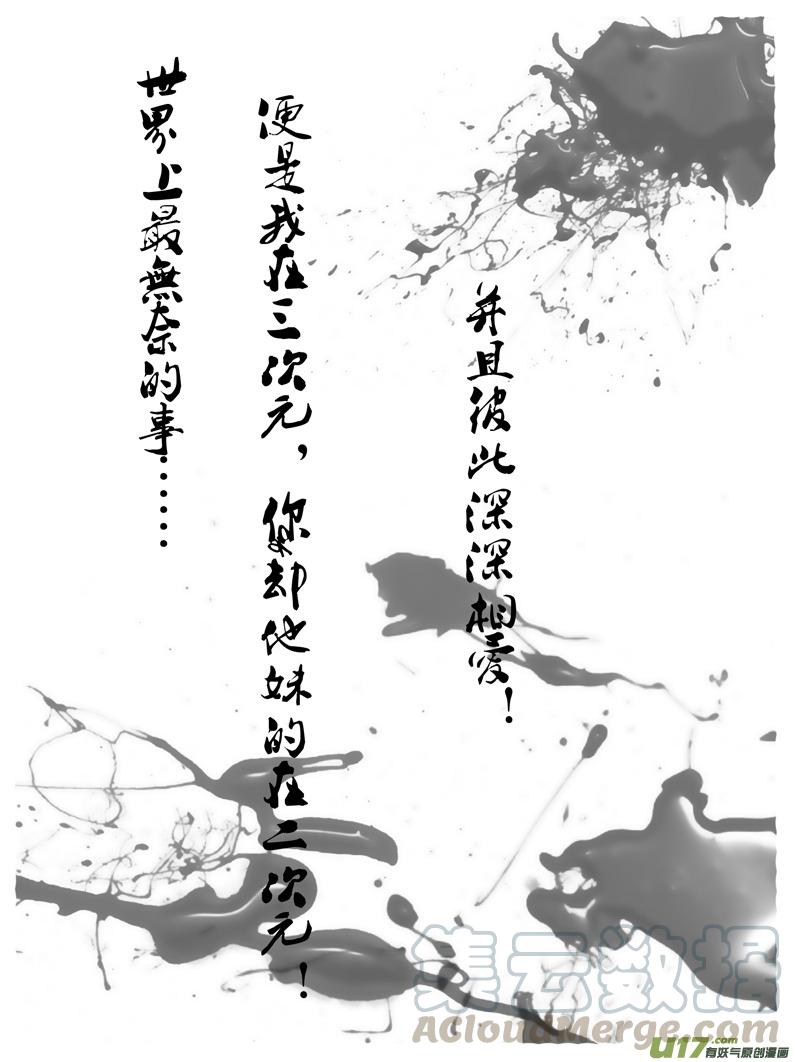 世界上最無奈的事······
便是我在三次元，你却他妹的在二次元！
并且彼此深深相爱！
集云数据
AcloudMerge.com
U17.com
有妖气原创漫画